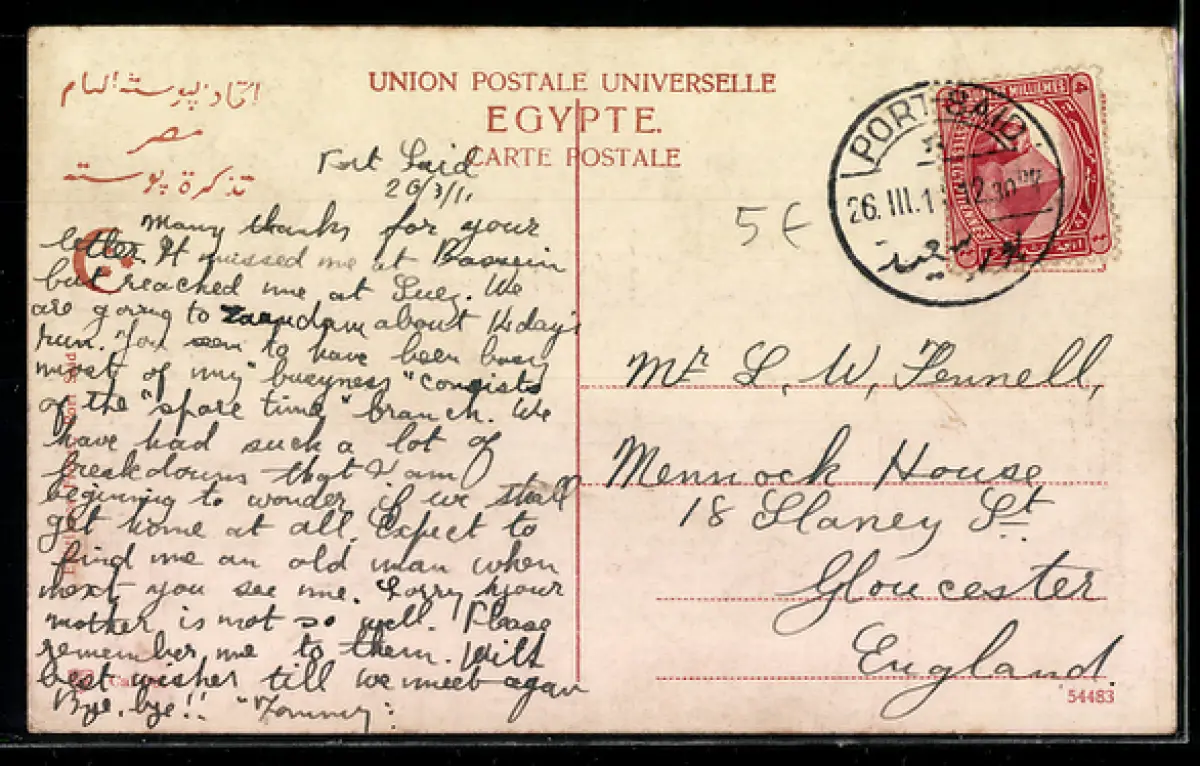 UNION POSTALE UNIVERSELLE
EGYPTE.
CARTE POSTALE
اتحاد پوسته العام
مصر
تذكرة پوسته
Port Said
26/3/11
Many thanks for your
letter. It missed me at Bassein
but reached me at Suez. We
are going to Zaandam about 14 day's
run. You seem to have been busy
most of my "busyness" consists
of the "spare time" branch. We
have had such a lot of
breakdowns that I am
beginning to wonder if we shall
get home at all. Expect to
find me an old man when
next you see me. Sorry your
mother is not so well. Please
remember me to them. With
best wishes till we meet again
Bye. bye!! "Tommy"
PORT-SAID
26. III. 1
5 €
Mr L. W. Fennell,
Mennock House
18 Llaney St
Gloucester
England.
54483